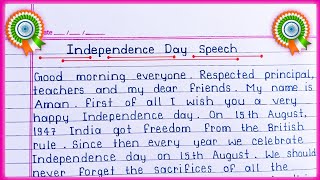 Date __/__/__
Independence Day Speech
Good morning everyone. Respected principal,
teachers and my dear friends. My name is
Aman. First of all I wish you a very
happy Independence day. On 15th August,
1947 India got freedom from the British
rule. Since then every year we celebrate
Independence day on 15th August. We should
never forget the sacrifices of all the